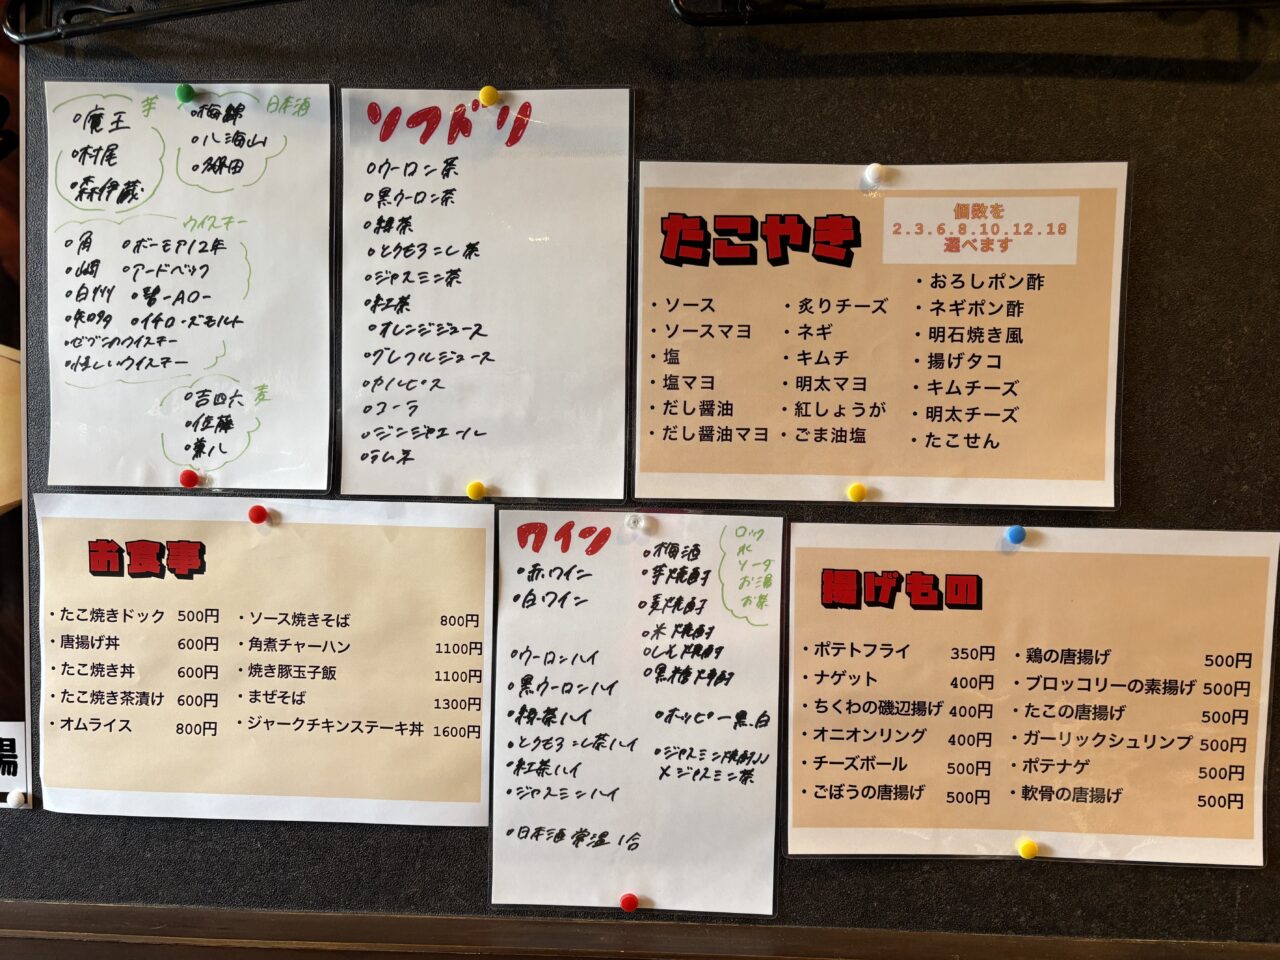 芋
・魔王
・村尾
・森伊蔵
日本酒
・梅錦
・八海山
ウイスキー
・角
・ボーモア12年
・山崎
・アードベック
・白州
・碧-AO-
・知多
・イチローズモルト
・セブンのウイスキー
・怪しいウイスキー
麦
・吉四六
・佐藤
・兼八
ソフドリ
・ウーロン茶
・黒ウーロン茶
・緑茶
・とうもろこし茶
・ジャスミン茶
・紅茶
・オレンジジュース
・グレフルジュース
・カルピス
・コーラ
・ジンジャエール
・ラムネ
たこやき
個数を
2.3.6.8.10.12.18
選べます
・ソース
・ソースマヨ
・塩
・塩マヨ
・だし醤油
・だし醤油マヨ
・炙りチーズ
・ネギ
・キムチ
・明太マヨ
・紅しょうが
・ごま油塩
・おろしポン酢
・ネギポン酢
・明石焼き風
・揚げタコ
・キムチーズ
・明太チーズ
・たこせん
お食事
・たこ焼きドック 500円
・唐揚げ丼 600円
・たこ焼き丼 600円
・たこ焼き茶漬け 600円
・オムライス 800円
・ソース焼きそば 800円
・角煮チャーハン 1100円
・焼き豚玉子飯 1100円
・まぜそば 1300円
・ジャークチキンステーキ丼 1600円
ワイン
・赤ワイン
・白ワイン
・ウーロンハイ
・黒ウーロンハイ
・緑茶ハイ
・とうもろこし茶ハイ
・紅茶ハイ
・ジャスミンハイ
・日本酒 常温 1合
・梅酒
・芋焼酎
・麦焼酎
・米焼酎
・しそ焼酎
・黒糖焼酎
ロック
水
ソーダ
お湯
お茶
・ホッピー黒.白
・ジャスミン焼酎
×ジャスミン茶
揚げもの
・ポテトフライ 350円
・ナゲット 400円
・ちくわの磯辺揚げ 400円
・オニオンリング 400円
・チーズボール 500円
・ごぼうの唐揚げ 500円
・鶏の唐揚げ 500円
・ブロッコリーの素揚げ 500円
・たこの唐揚げ 500円
・ガーリックシュリンプ 500円
・ポテナゲ 500円
・軟骨の唐揚げ 500円